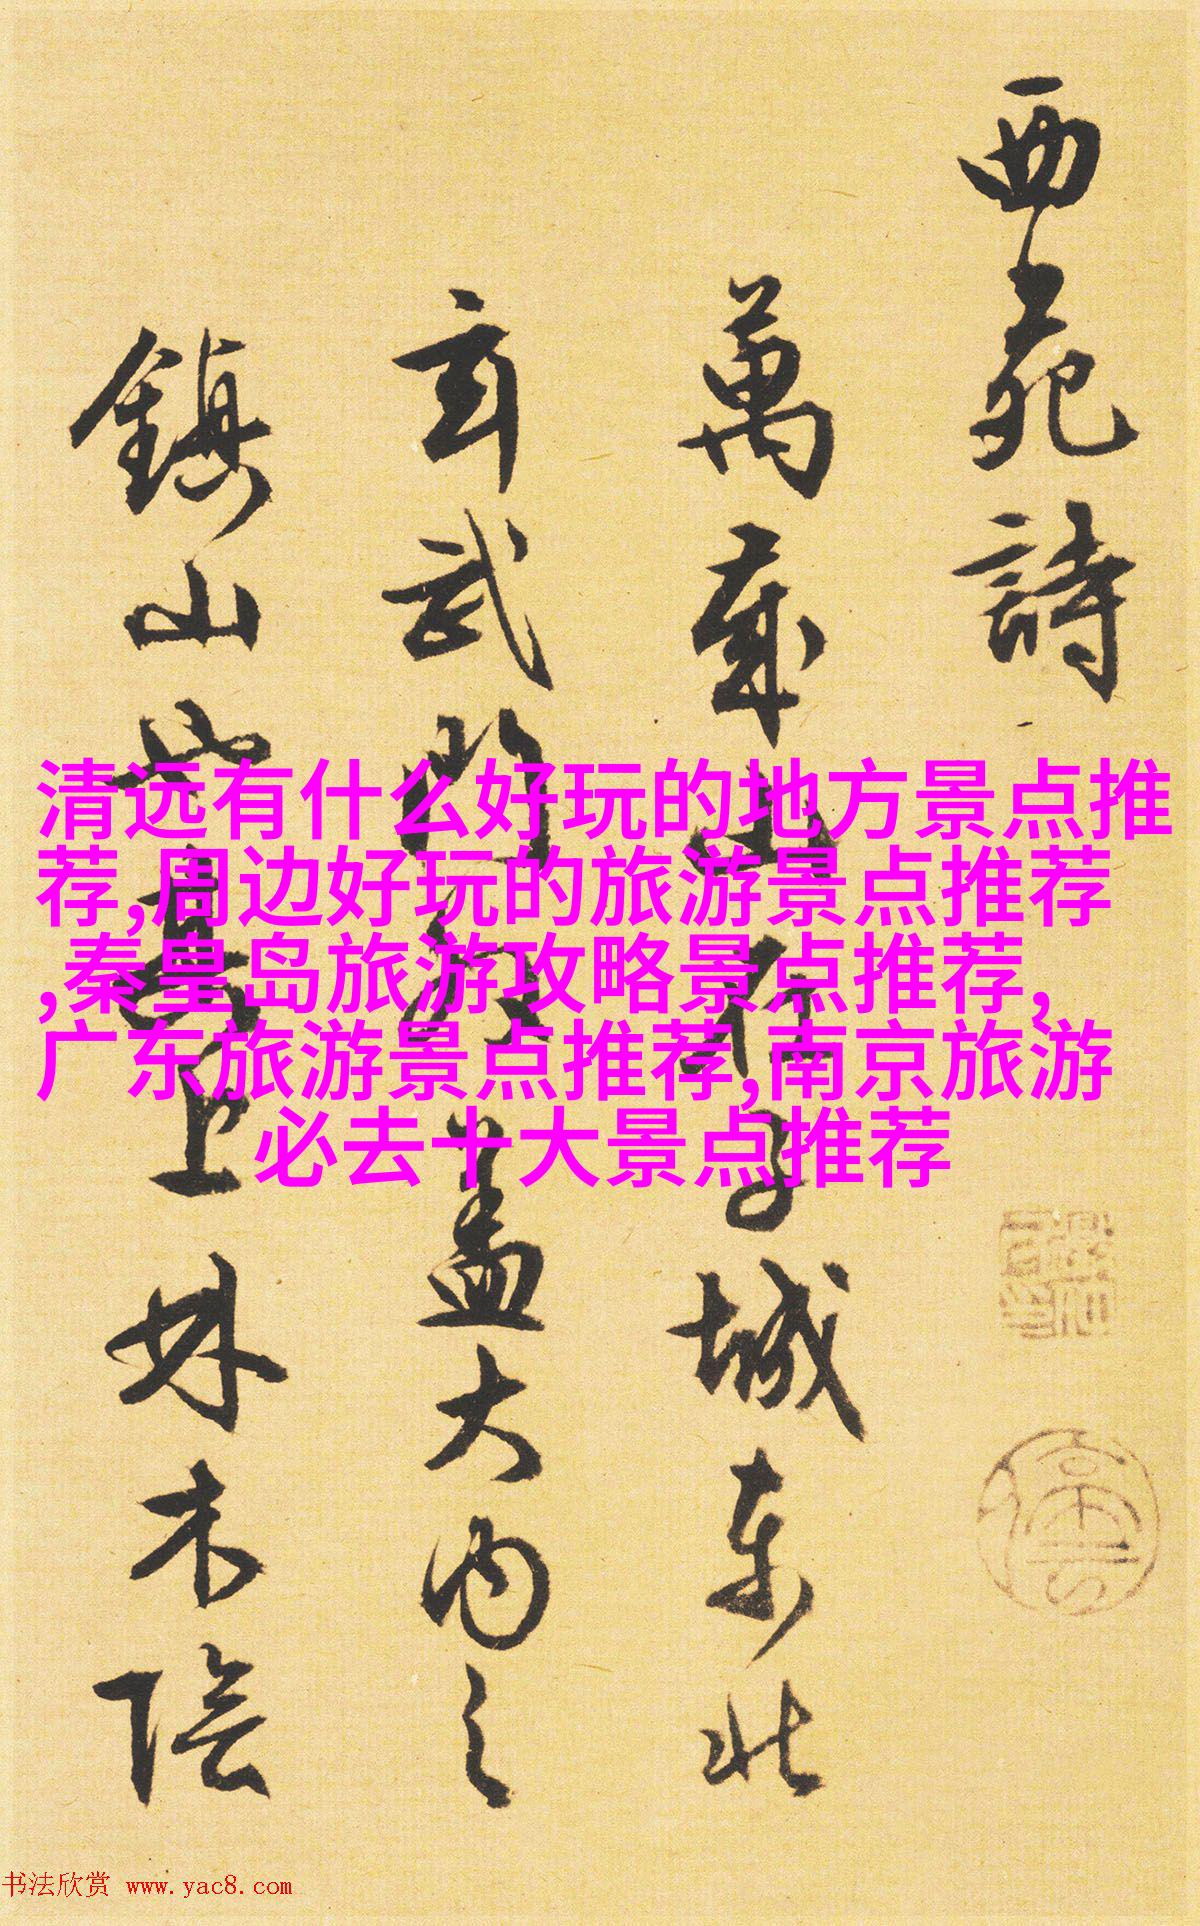 西苑詩
萬歲山在子城東北
玄武門外蓋大内之
鎮山高上林木陰
清远有什么好玩的地方景点推
荐,周边好玩的旅游景点推荐
,秦皇岛旅游攻略景点推荐,
广东旅游景点推荐,南京旅游
必去十大景点推荐
书法欣赏 www.yac8.com